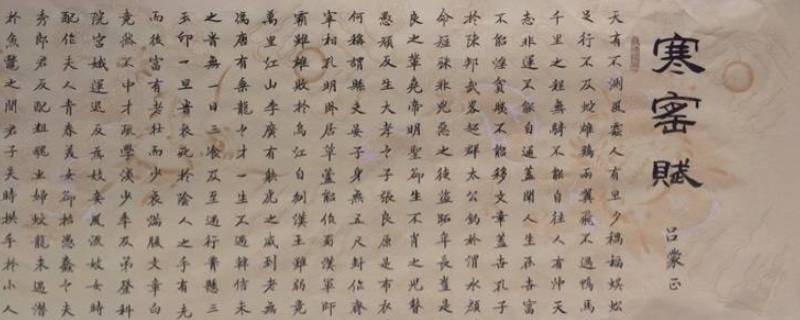 寒窰賦
吕蒙正
天有不測風雲人有旦夕禍福蜈蚣
足行不及蛇雄鷄兩翼飛不過鴨馬
千里之程無騎不能自往人有冲天
志非運不能自通蓋聞人生在世富
不能淫貧賤不能移文章蓋古孔子
於陳邦武畧超群太公釣於渭水顔
命短殊非兇惡之徒盜跖年長豈是
良之輩堯帝明聖卻生不肖之兒瞽
愚頑反生大孝之子張良原是布衣
何稱謂縣吏晏子身無五尺封作齊
宰相孔明卧居草蘆能作蜀漢軍師
霸雖雄敗於烏江自刎漢王雖弱竟
萬里江山李廣有射虎之威到老無
馮唐有乘龍之才一生不遇韓信未
之時無一日三餐及至遇行腰懸三
玉印一旦時衰死於陰人之手有先
而後富有老壯而少衰滿腹文章白
竟然不中才疏學淺少年及第登科
院宮娥運退反為妓妾風流妓女時
配作夫人青春美女卻招愚蠢之夫
秀郎君反配粗醜之婦蛟龍未遇潛
於魚鼈之間君子失時拱手於小人